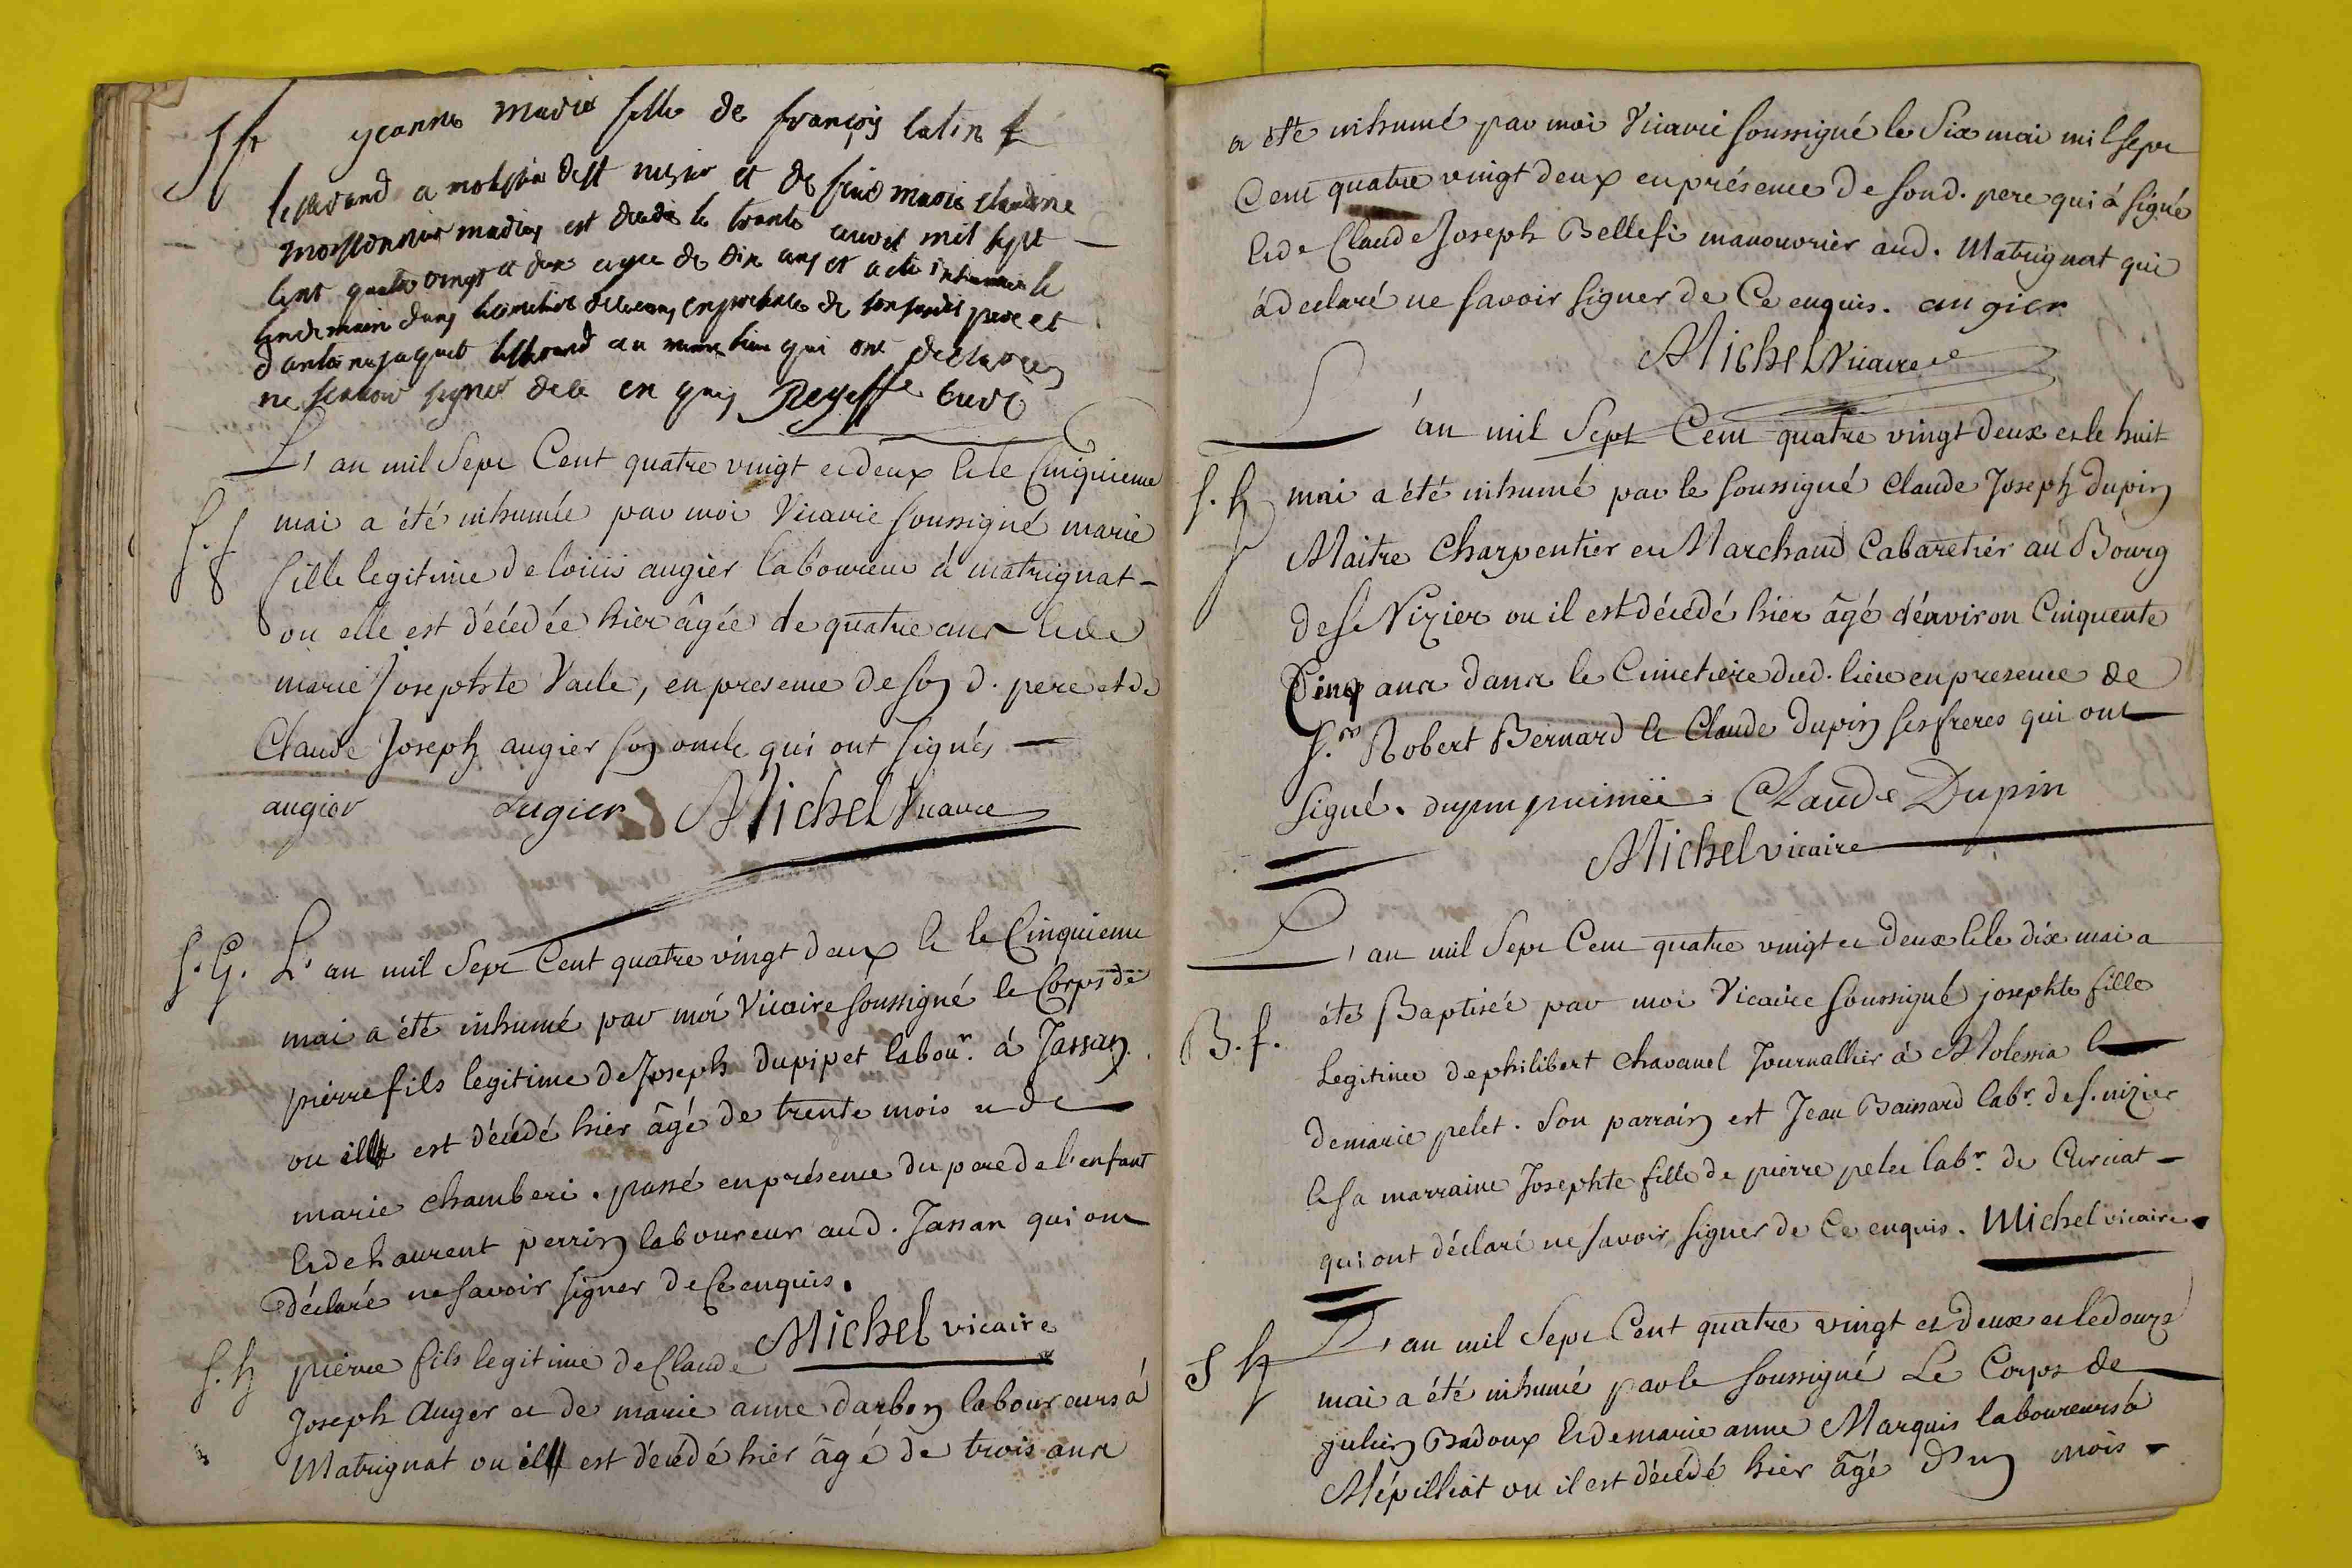 jeanne marie fille de françois catin
tisserand a molepia de st nizier et de feue marie claudine
moissonnier mariés est décédée le trente avril mil sept
cent quatre vingt et deux agée de dix ans et a été inhumée le
lendemain dans le cimetiere de ce lieu en presence de son susdit pere et
d'antoine jaquet tisserand au qui ont declarés
ne scavoir signer de ce en quis Reyeffe curé
L'an mil Sept Cent quatre vingt et deux & le Cinquieme
S. f mai a été inhumée par moi Vicaire soussigné marie
fille legitime de loüis augier laboureur à matrignat
ou elle est décédée hier âgée de quatre ans & de
marie Josephte Vaile, en presence de son d. pere et de
Claude Joseph augier son oncle qui ont signés
augier augier Michel Vicaire
S. G. L'an mil Sept Cent quatre vingt deux & le Cinquieme
mai a été inhumé par moi Vicaire soussigné le Corps de
pierre fils legitime de Joseph dupipet labour. à Jassan
ou il est décédé hier âgé de trente mois et de
marie chamberi. passé en présence du pere de l'enfant
& de Laurent perrin laboureur aud. Jassan qui ont
déclaré ne savoir signer de Ce enquis.
Michel vicaire
S. h pierre fils legitime de Claude
Joseph Auger et de marie anne darbon laboureurs à
Matrignat ou il est décédé hier âgé de trois ans
a été inhumé par moi Vicaire soussigné le Six mai mil sept
Cent quatre vingt deux en présence de sond. pere qui à signé
& de Claude Joseph Bellefi manouvrier aud. Matrignat qui
à déclaré ne savoir signer de Ce enquis. augier
Michel Vicaire
L'an mil Sept Cent quatre vingt deux et le huit
S. h mai a été inhumé par le soussigné Claude Joseph dupin
Maitre Charpentier et Marchand Cabaretier au Bourg
de St Nizier ou il est décédé hier âgé d'environ Cinquente
Cinq ans dans le Cimetiere dud. lieu en presence de
Srs Robert Bernard & Claude Dupin ses freres qui ont
signé. dupin Claude Dupin
Michel vicaire
L'an mil Sept Cent quatre vingt et deux & le dix mai a
B. f. été Baptisée par moi Vicaire soussigné josephte fille
Legitime de philibert Chavanel Journallier à Molessia &
de marie pelet. Son parrain est Jean Baissard labr. de s. nizier
& sa marraine Josephte fille de pierre pelet labr. de Curciat
qui ont déclaré ne savoir signer de Ce enquis. Michel vicaire
S h L'an mil Sept Cent quatre vingt et deux et le douze
mai a été inhumé par le soussigné Le Corps de
julien Badoux & de marie anne Marquis laboureurs à
Mépilliat ou il est décédé hier âgé d'un mois